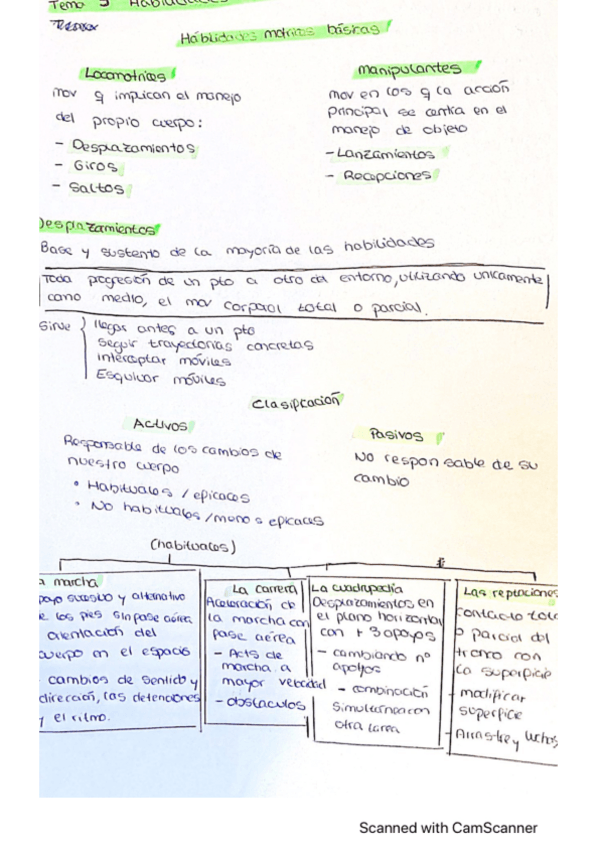 Tema 3 Habilidades
Habilidades motrices básicas
Locomotrices
mov q implican el manejo
del propio cuerpo:
- Desplazamientos
- Giros
- Saltos
manipulantes
mov en los q la acción
principal se centra en el
manejo de objeto
- Lanzamientos
- Recepciones
Desplazamientos
Base y sustento de la mayoría de las habilidades
Toda progresión de un pto a otro del entorno, utilizando unicamente
como medio, el mov corporal total o parcial.
Sirve
llegar antes a un pto
seguir trayectorias concretas
interceptar móviles
Esquivar móviles
Clasificación
Activos
Responsable de los cambios de
nuestro cuerpo
• Habituales / eficaces
• No habituales / menos eficaces
Pasivos
No responsable de su
cambio
(habituales)
a marcha
poyo sucesivo y alternativo
e los pies sin fase aérea
orientación del
cuerpo en el espacio
cambios de sentido y
dirección, las detenciones
y el ritmo.
La carrera
Aceleración de
la marcha con
fase aérea
- Acts de
marcha a
mayor velocidad
- obstaculos
La cuadrupedia
Desplazamientos en
el plano horizontal
con + 3 apoyos
- cambiando nº
apoyos
- combinación
simultanea con
otra tarea
Las reptaciones
contacto tota
o parcial del
tronco con
la superficie
- modificar
superfice
- Arrastre y luchas
Scanned with CamScanner